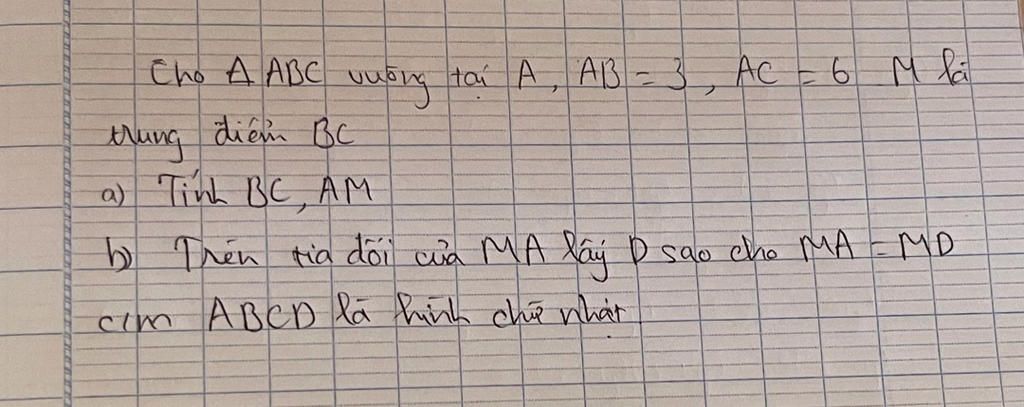 Cho Δ ABC vuông tại A, AB = 3, AC = 6 M là
trung điểm BC
a) Tính BC, AM
b) Trên tia đối của MA lấy D sao cho MA = MD
c/m ABCD là hình chữ nhật